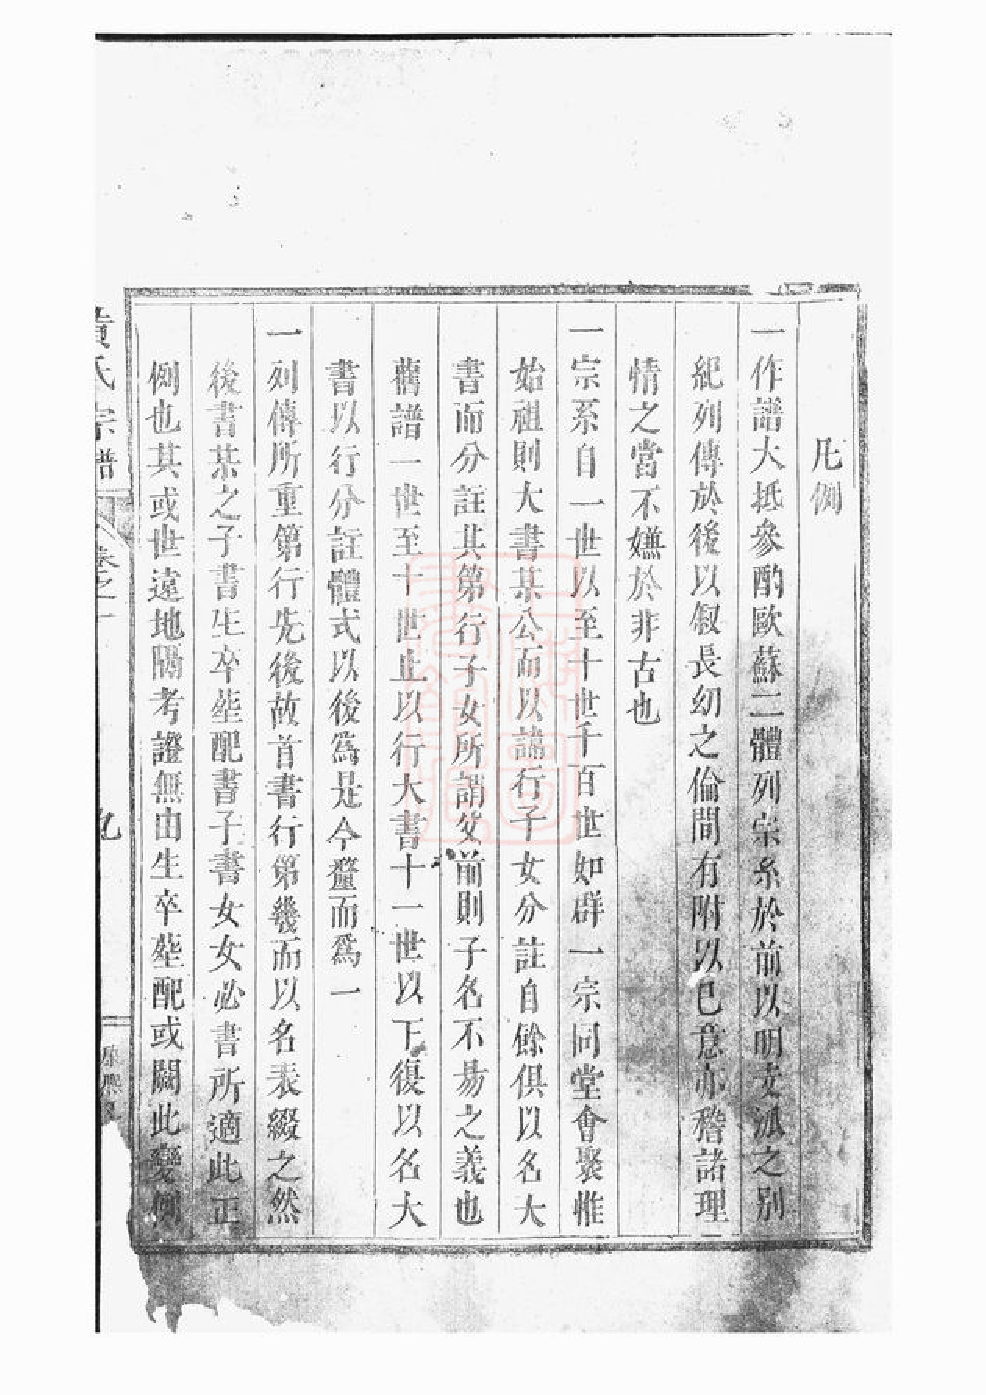 凡例
一作譜大抵參酌歐蘇二體列宗系於前以明支派之別
紀列傳於後以叙長幼之倫間有附以己意亦稽諸理
情之當不嫌於非古也
一宗系自一世以至十世千百世如群一宗同堂會聚惟
始祖則大書某公而以諱行子女分註自餘俱以名大
書而分註其第行子女所謂父前則子名不易之義也
舊譜一世至十世止以行大書十一世以下復以名大
書以行分註體式以後為是今釐而爲一
一列傳所重第行先後故首書行第幾而以名表綴之然
後書某之子書生卒塟配書子書女女必書所適此正
例也其或世遠地隔考證無由生卒塟配或闕此變例
黃氏宗譜
卷之一
九